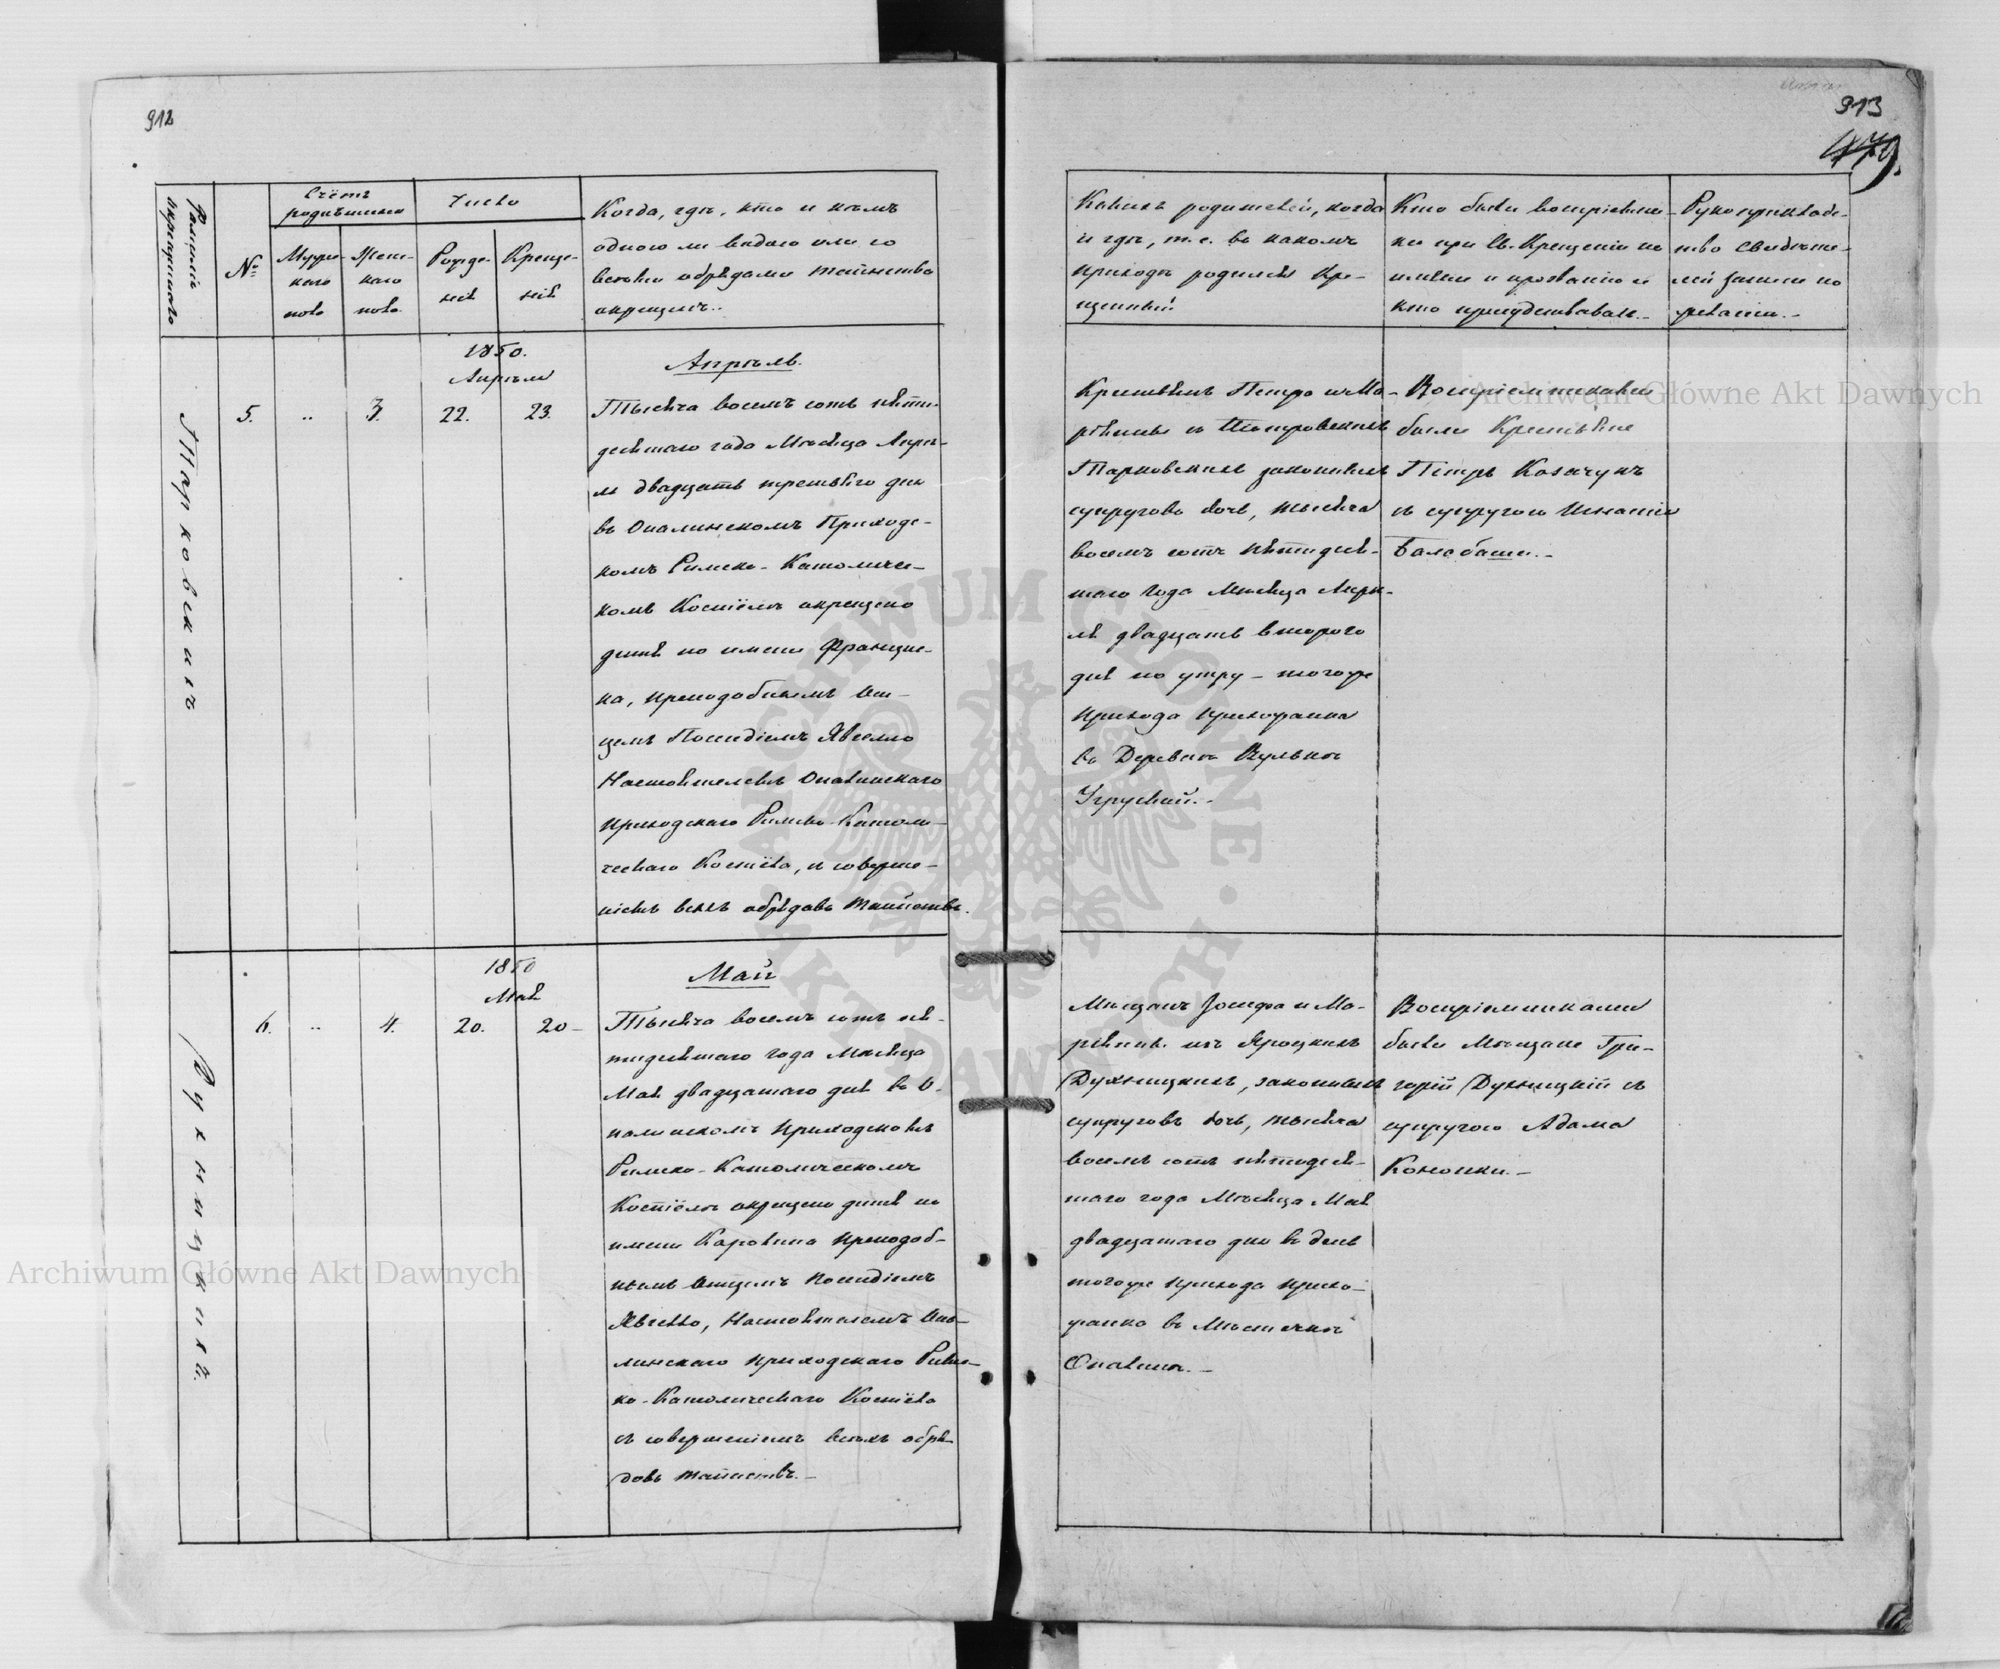 912
Фамилія
окрещеннаго
№
Счётъ
родившихся
Мужес-
каго
пола
Женс-
каго
пола.
Число
Рожде-
нія
Креще-
нія
Когда, гдѣ, кто и кѣмъ
одною ли водою или со
всѣми обрядами таинства
окрещенъ.
Тарковскихъ
5.
..
3.
1850.
Апрѣля
22.
23.
Апрѣль.
Тысяча восемъ сотъ пяти-
десятаго года Мѣсяца Апрѣ-
ля двадцать третьяго дня
въ Опалинскомъ Приходс-
комъ Римско-Католичес-
комъ Костёлѣ окрещено
дитя по имени Францис-
ка, преподобнымъ От-
цемъ
Настоятелемъ Опалинскаго
Приходскаго Римско-Католи-
ческаго Костёла, съ соверше-
ніемъ всѣхъ обрядовъ таинствъ.
Духницкій.
6.
..
4.
1850
Мая
20.
20-
Май
Тысяча восемъ сотъ пя-
тидесятаго года Мѣсяца
Мая двадцатаго дня въ О-
палинскомъ Приходскомъ
Римско-Католическомъ
Костёлѣ окрещено дитя по
имени Каролина Преподоб-
нымъ Отцемъ
Настоятелемъ Опа-
линскаго Приходскаго Римс-
ко-Католическаго Костёла
съ совершеніемъ всѣхъ обря-
довъ таинствъ.-
913
479.
Какихъ родителей, когда
и гдѣ, т.е. въ какомъ
приходѣ родился кре-
щенный
Кто были воспріемни-
ки при Св. Крещеніи по
имени и прозванію и
кто присудствовалъ.-
Рукоприкладс-
тво свидѣте-
лей
Крестьянъ Петра и Ма-
ріянны съ Піотровскихъ
Тарковскихъ законныхъ
супруговъ дочь, тысяча
восемъ сотъ пятидеся-
таго года Мѣсяца Апрѣ-
ля двадцать втораго
дня по утру - тогоже
прихода прихожанка
въ Деревнѣ Вулькѣ
Угруской.-
Воспріемниками
были Крестьяне
Петръ Казачукъ
съ супругою Игнатія
Балабаша.-
Мѣщанъ Іосифа и Ма-
ріянны изъ Яроцкихъ
Духницкихъ, законныхъ
супруговъ дочь, тысяча
восемъ сотъ пятидеся-
таго года Мѣсяца Мая
двадцатаго дня въ день
тогоже прихода прихо-
жанка въ Мѣстечкѣ
Опалинѣ.-
Воспріемниками
были Мѣщане Гри-
горій Духницкій съ
супругою Адама
Кононки.-
Archiwum Główne Akt Dawnych
Archiwum Główne Akt Dawnych
ARCHIWUM GŁÓWNE AKT DAWNYCH